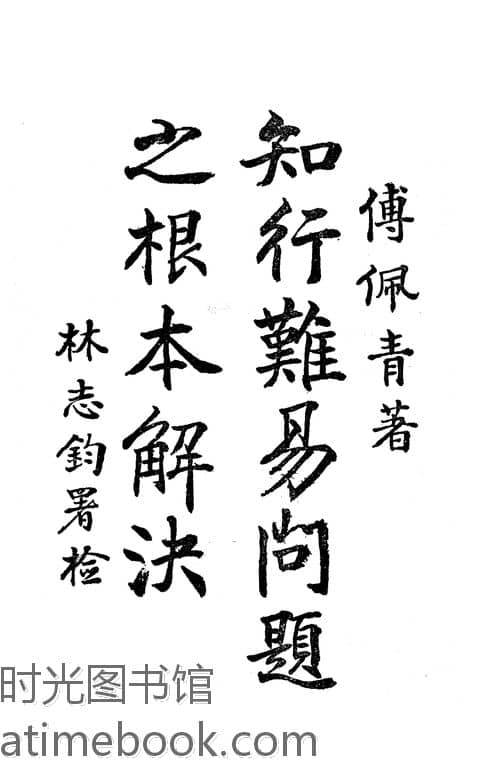 傅佩青著
知行難易问題
之根本解決
林志鈞署检
时光图书馆
atimebook.com